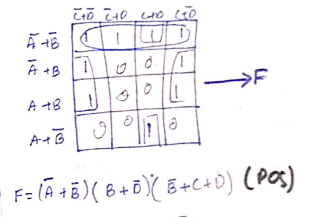 C̅+D̅ C̅+D C+D C+D̅
A̅+B̅ 1 1 1 1
A̅+B 1 0 0 1
A+B 1 0 0 1
A+B̅ 0 0 1 0
→F
F=(A̅+B̅)(B+D̅)(B̅+C+D) (POS)